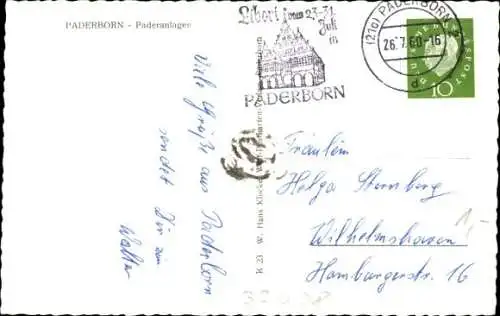 PADERBORN - Paderanlagen
Libori vom 23-31.
Juli
in
PADERBORN
(21a) PADERBORN
26.7.60-16
d
DEUTSCHE BUNDESPOST
10
Viele Grüße aus Paderborn
sendet Dir
Walter
K 23 W. Hans Klocke
Fräulein
Helga Sternberg
Wilhelmshaven
Hamburgerstr. 16
1,-